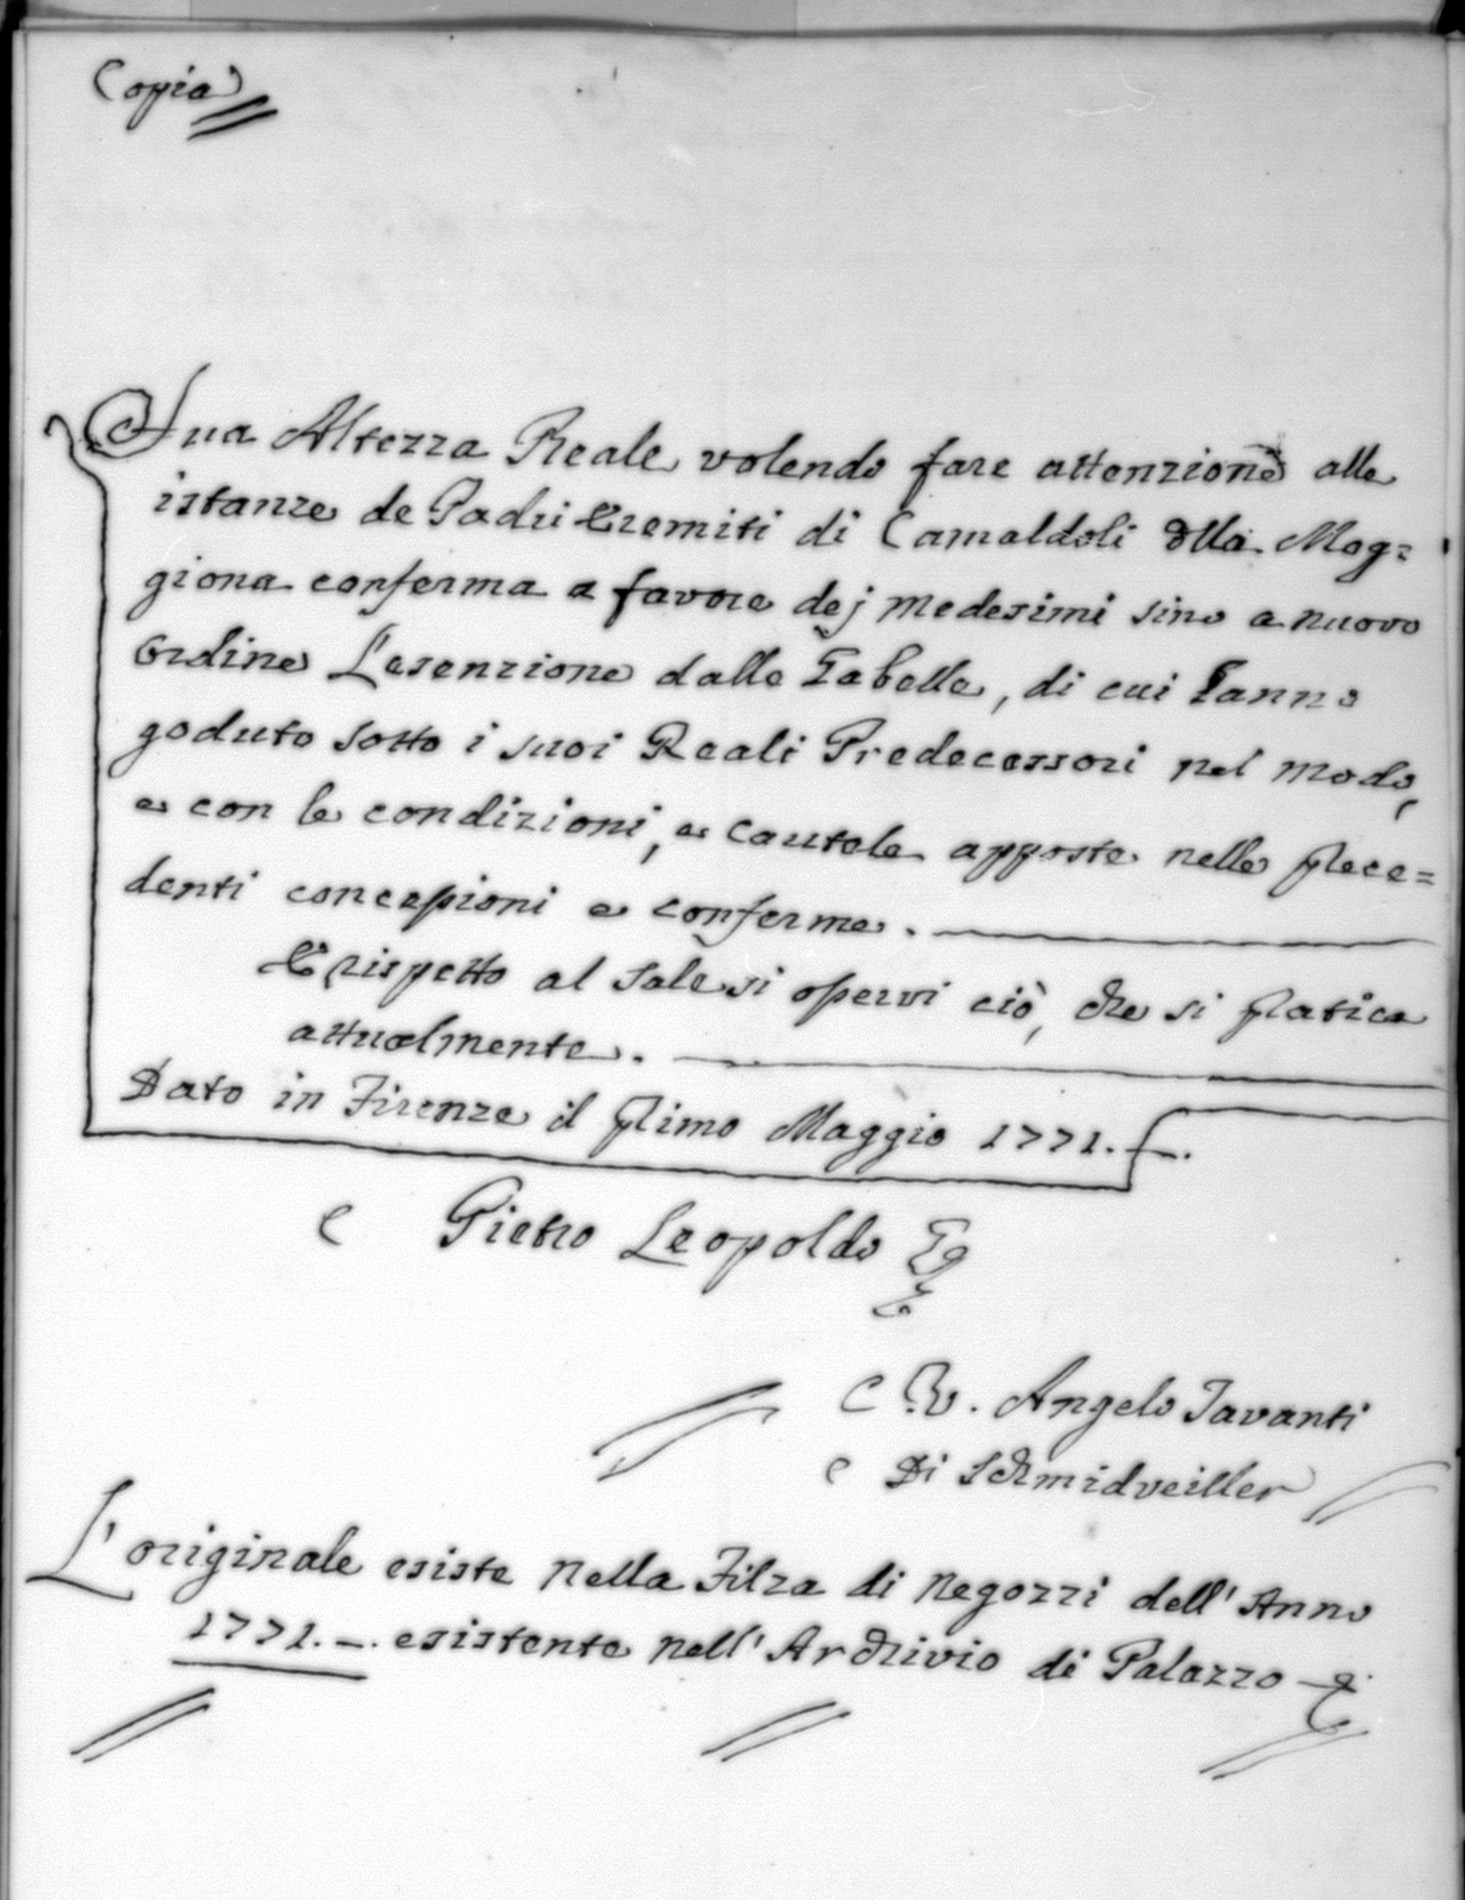 Copia
Sua Altezza Reale volendo fare attenzione alle
istanze de Padri Eremiti di Camaldoli della Mog=
giona conferma a favore dej medesimi sino a nuovo
Ordine L'esenzione dalle Gabelle, di cui Hanno
goduto sotto i suoi Reali Predecessori nel modo,
e con le condizioni, e Cautele apposte nelle prece=
denti concessioni e conferme.
E rispetto al Sale si osservi ciò, che si pratica
attualmente.
Dato in Firenze il primo Maggio 1771.
Pietro Leopoldo
V. Angelo Tavanti
Di Schmidveiller
L'originale esiste nella Filza di Negozzi dell'Anno
1771. esistente nell'Archivio di Palazzo